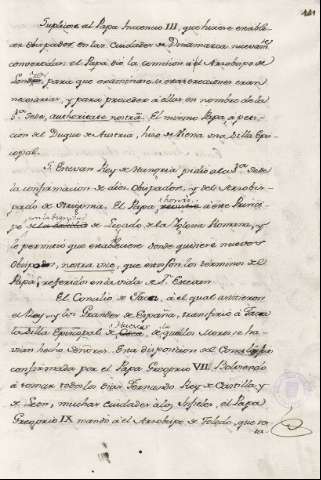 Suplicó al Papa Inocencio III, que hiciese establecer
Obispados en las Ciudades de Dinamarca nuevamte
convertidas. El Papa dió la comision á el Arzobispo de
para que examinase si estas erecciones eran
necesarias, y para proceder á ellas en nombre de la
Sta Sede, authoritate nostrâ. El mismo Papa, á peti-
cion del Duque de Austria, hizo de Viena una Silla Epis-
copal.
S. Estevan Rey de Hungria pidió á la Sta Sede
la confirmacion de diez Obispados, y del Arzobis-
pado de Strigonia. El Papa honró á este Princi-
pe de Legado de la Iglesia Romana, y
le permitió que estableciese donde quisiese nuevos
Obispados, nostra vice, que son los términos del
Papa, referidos en la vida de Sn Estevan.
El Concilio de Jaca, á el qual asistieron
el Rey, y los Grandes de España, transfirió á Jaca
la Silla Episcopal de Huesca, de la qual los Moros se ha-
vian hecho Señores. Esta disposicion del Concilio fue
confirmada por el Papa Gregorio VII. Bolviendo
á tomar todos los dias Fernando Rey de Castilla y
de Leon, muchas ciudades á los Infieles, el Papa
Gregorio IX mandó á el Arzobispo de Toledo, que